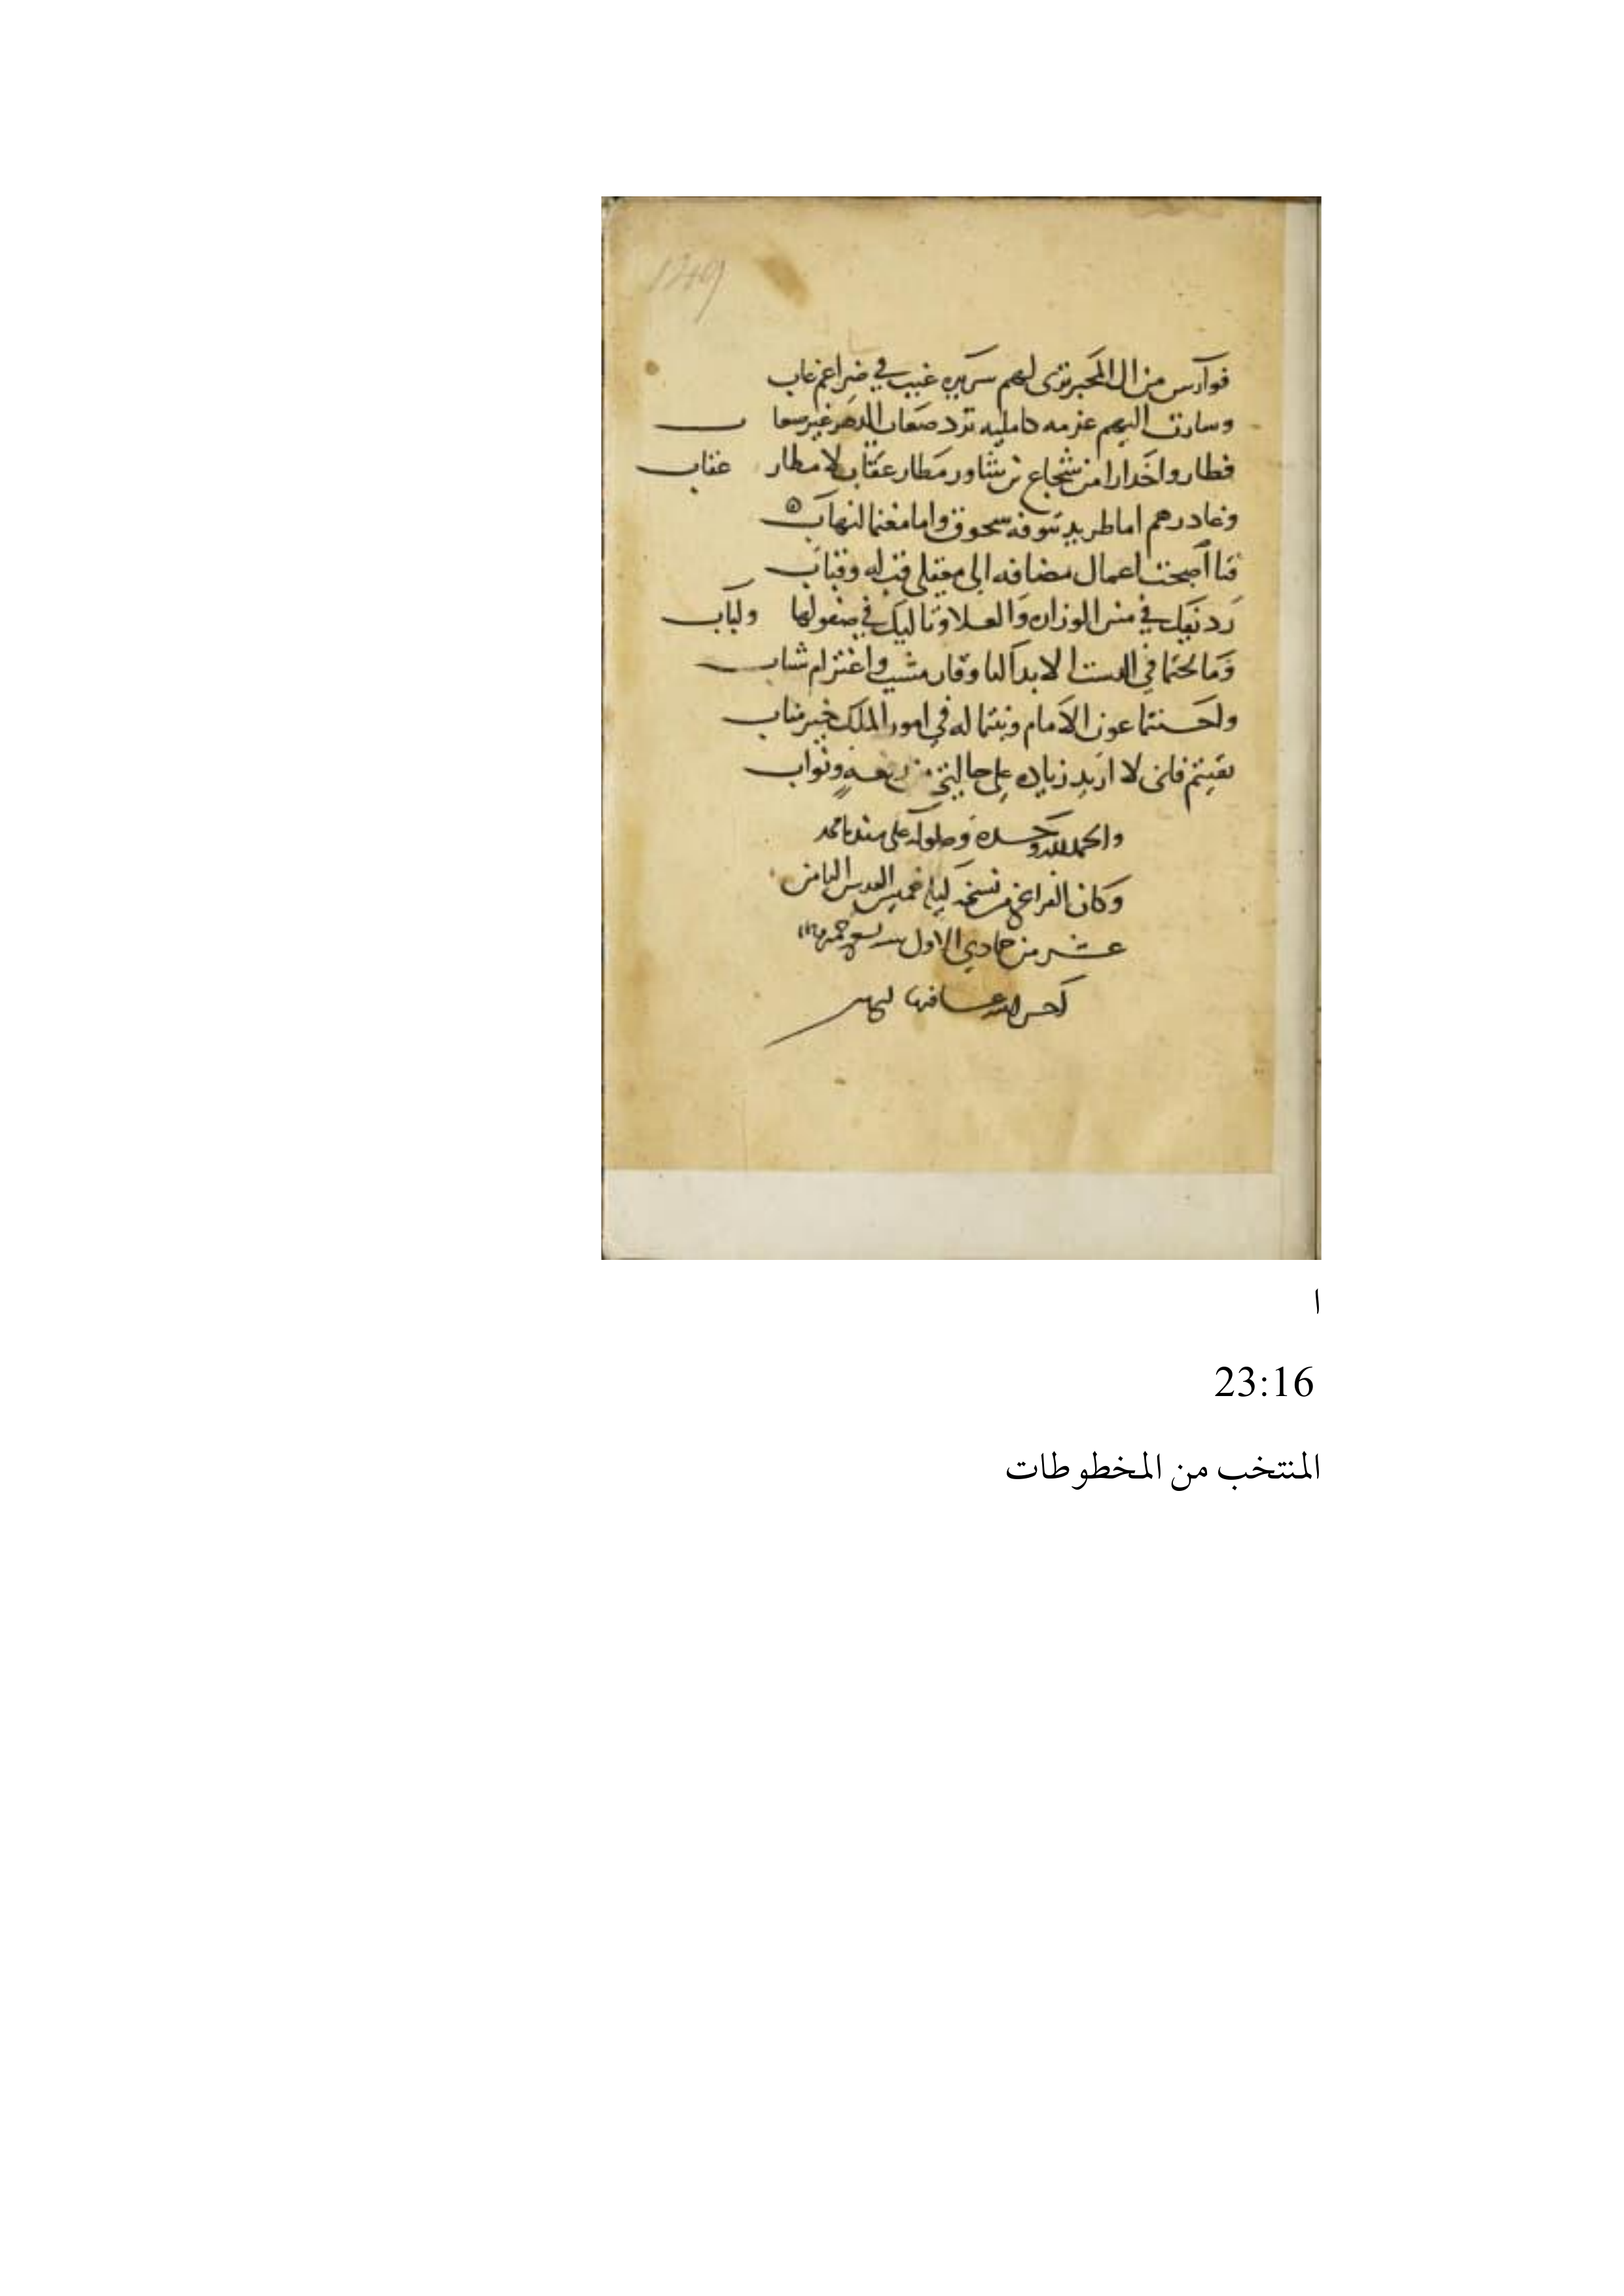 1249
فوارس من ال المجبر ترى لهم سريره غيب في ضراغم غاب
وسارت اليهم عزمه كامليه ترد صعاب الدهر غير صعاب
فطاروا حذارا من شجاع بن شاور مطار عقاب لا مطار عقاب
وغادرهم اما طريد تسوفه سحوق واما مغنما لنهاب
اصبحت اعمال مضافه الى معقلى قب له وقباب
في الوزاره والعلا في ولباب
وما في الدست الا وقار مشيب واعتزام شباب
ولحسنتما عون الامام ونبتما له في امور الملك خير مناب
بقيتم فانى لا اريد زياده على حالتى من ونواب
والحمد لله وحده وصلواته على سيدنا محمد
وكان الفراغ من نسخه ليله خميس العدس الثامن
عشر من جمادي الاول
احسن الله عاقبتها
ا
23:16
المنتخب من المخطوطات